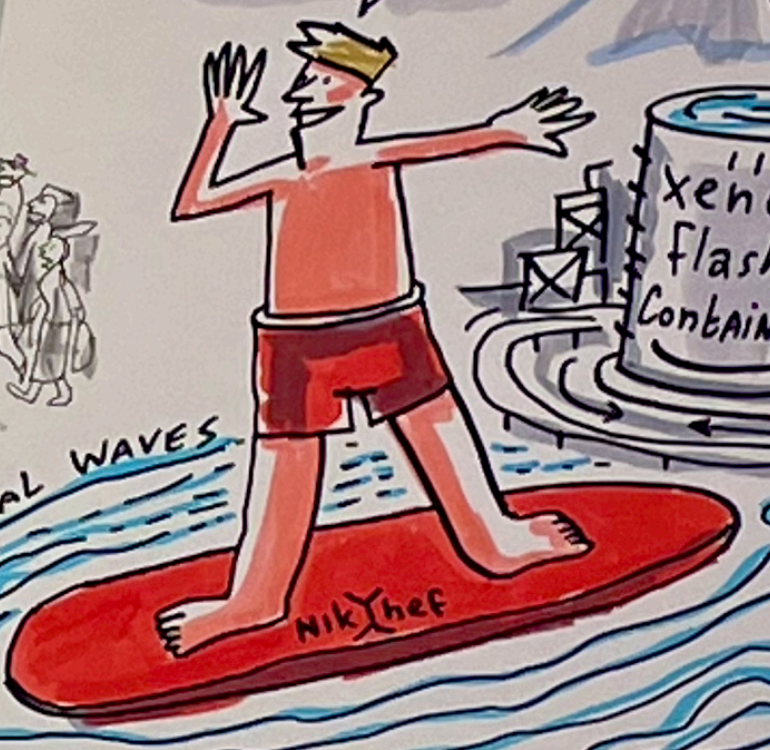 xen
flash
ContAiN
AL WAVES
Nikhef